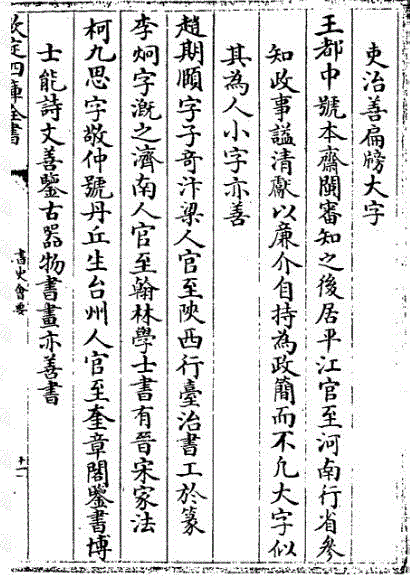 吏治善扁牓大字
王都中號本齋閩審知之後居平江官至河南行省參
知政事謚清獻以廉介自持為政簡而不凡大字似
其為人小字亦善
趙期頤字子竒汴梁人官至陜西行臺治書工於篆
李炯字溉之濟南人官至翰林學士書有晉宋家法
柯九思字敬仲號丹丘生台州人官至奎章閣鑒書博
士能詩文善鑒古器物書畫亦善書
欽定四庫全書
書史會要